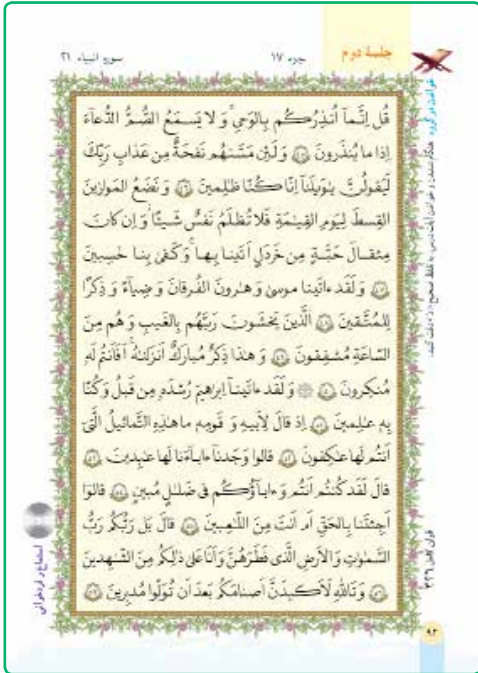 جلسهٔ دوم
جزء ۱۷
سورهٔ انبیاء ۲۱
قُل اِنَّمآ اُنذِرُكُم بِالوَحیِ وَ لا یَسمَعُ الصُّمُّ الدُّعآءَ
اِذا ما یُنذَرونَ ۴۵ وَ لَئِن مَسَّتهُم نَفحَةٌ مِن عَذابِ رَبِّكَ
لَیَقولُنَّ یٰوَیلَنآ اِنّا كُنّا ظٰلِمینَ ۴۶ وَ نَضَعُ المَوازینَ
القِسطَ لِیَومِ القِیٰمَةِ فَلا تُظلَمُ نَفسٌ شَیئًا وَ اِن كانَ
مِثقالَ حَبَّةٍ مِن خَردَلٍ اَتَینا بِها وَ كَفیٰ بِنا حٰسِبینَ
۴۷ وَ لَقَد ءاتَینا موسیٰ وَ هٰرونَ الفُرقانَ وَ ضِیآءً وَ ذِكرًا
لِلمُتَّقینَ ۴۸ اَلَّذینَ یَخشَونَ رَبَّهُم بِالغَیبِ وَ هُم مِنَ
السّاعَةِ مُشفِقونَ ۴۹ وَ هٰذا ذِكرٌ مُبارَكٌ اَنزَلنٰهُ اَفَاَنتُم لَهٗ
مُنكِرونَ ۵۰ وَ لَقَد ءاتَینآ اِبراهیمَ رُشدَهٗ مِن قَبلُ وَ كُنّا
بِهٖ عٰلِمینَ ۵۱ اِذ قالَ لِاَبیهِ وَ قَومِهٖ ما هٰذِهِ التَّماثیلُ الَّتیٓ
اَنتُم لَها عٰكِفونَ ۵۲ قالوا وَجَدنآ ءابآءَنا لَها عٰبِدینَ ۵۳
قالَ لَقَد كُنتُم اَنتُم وَ ءابآؤُكُم فی ضَلٰلٍ مُبینٍ ۵۴ قالوٓا
اَجِئتَنا بِالحَقِّ اَم اَنتَ مِنَ اللّٰعِبینَ ۵۵ قالَ بَل رَبُّكُم رَبُّ
السَّمٰوٰتِ وَ الاَرضِ الَّذی فَطَرَهُنَّ وَ اَنَا عَلیٰ ذٰلِكُم مِنَ الشّٰهِدینَ
۵۶ وَ تَاللّٰهِ لَاَكیدَنَّ اَصنامَكُم بَعدَ اَن تُوَلّوا مُدبِرینَ ۵۷
استماع و فردخوانی
۹۲